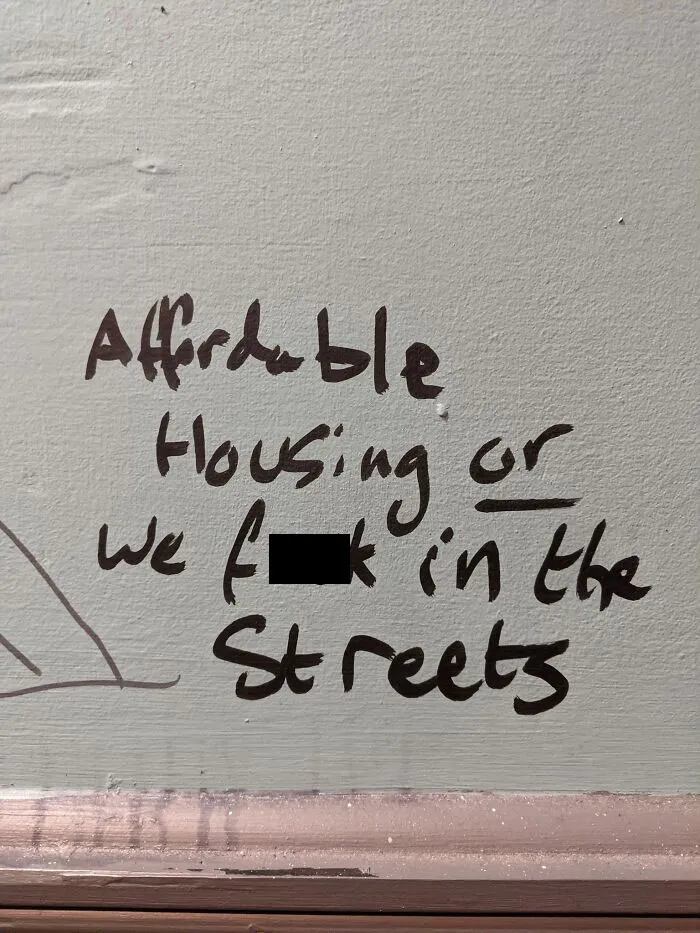 Affordable
Housing or
we f k in the
Streets